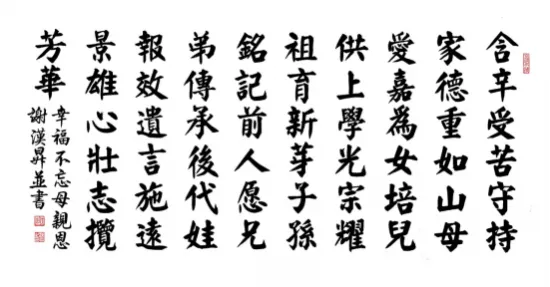 含辛受苦守持
家德重如山母
愛嘉為女培兒
供上學光宗耀
祖育新芽子孫
銘記前人愿兄
弟傳承後代娃
報效遺言施遠
景雄心壯志攬
芳華
幸福不忘母親恩
謝漢昇並書